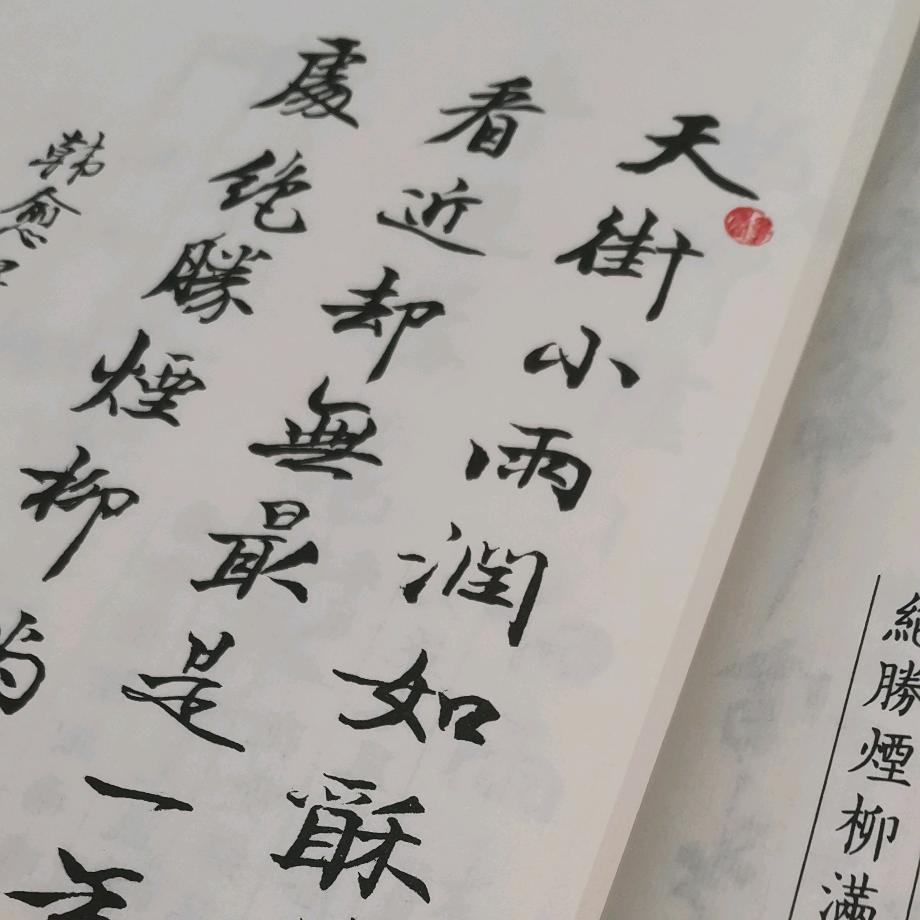 天街小雨潤如酥
看近却無最是一年
處絶勝煙柳
韩愈
絕勝煙柳滿